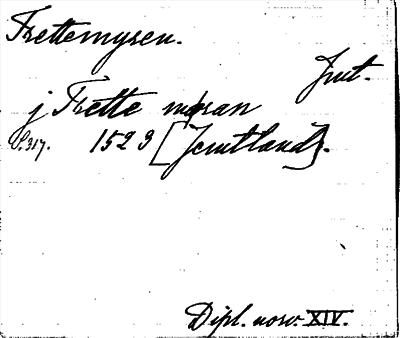 Frettemyren.
Jmt.
j Frette myran
S. 317. 1523 [Jemtland].
Dipl. norv. XIV.